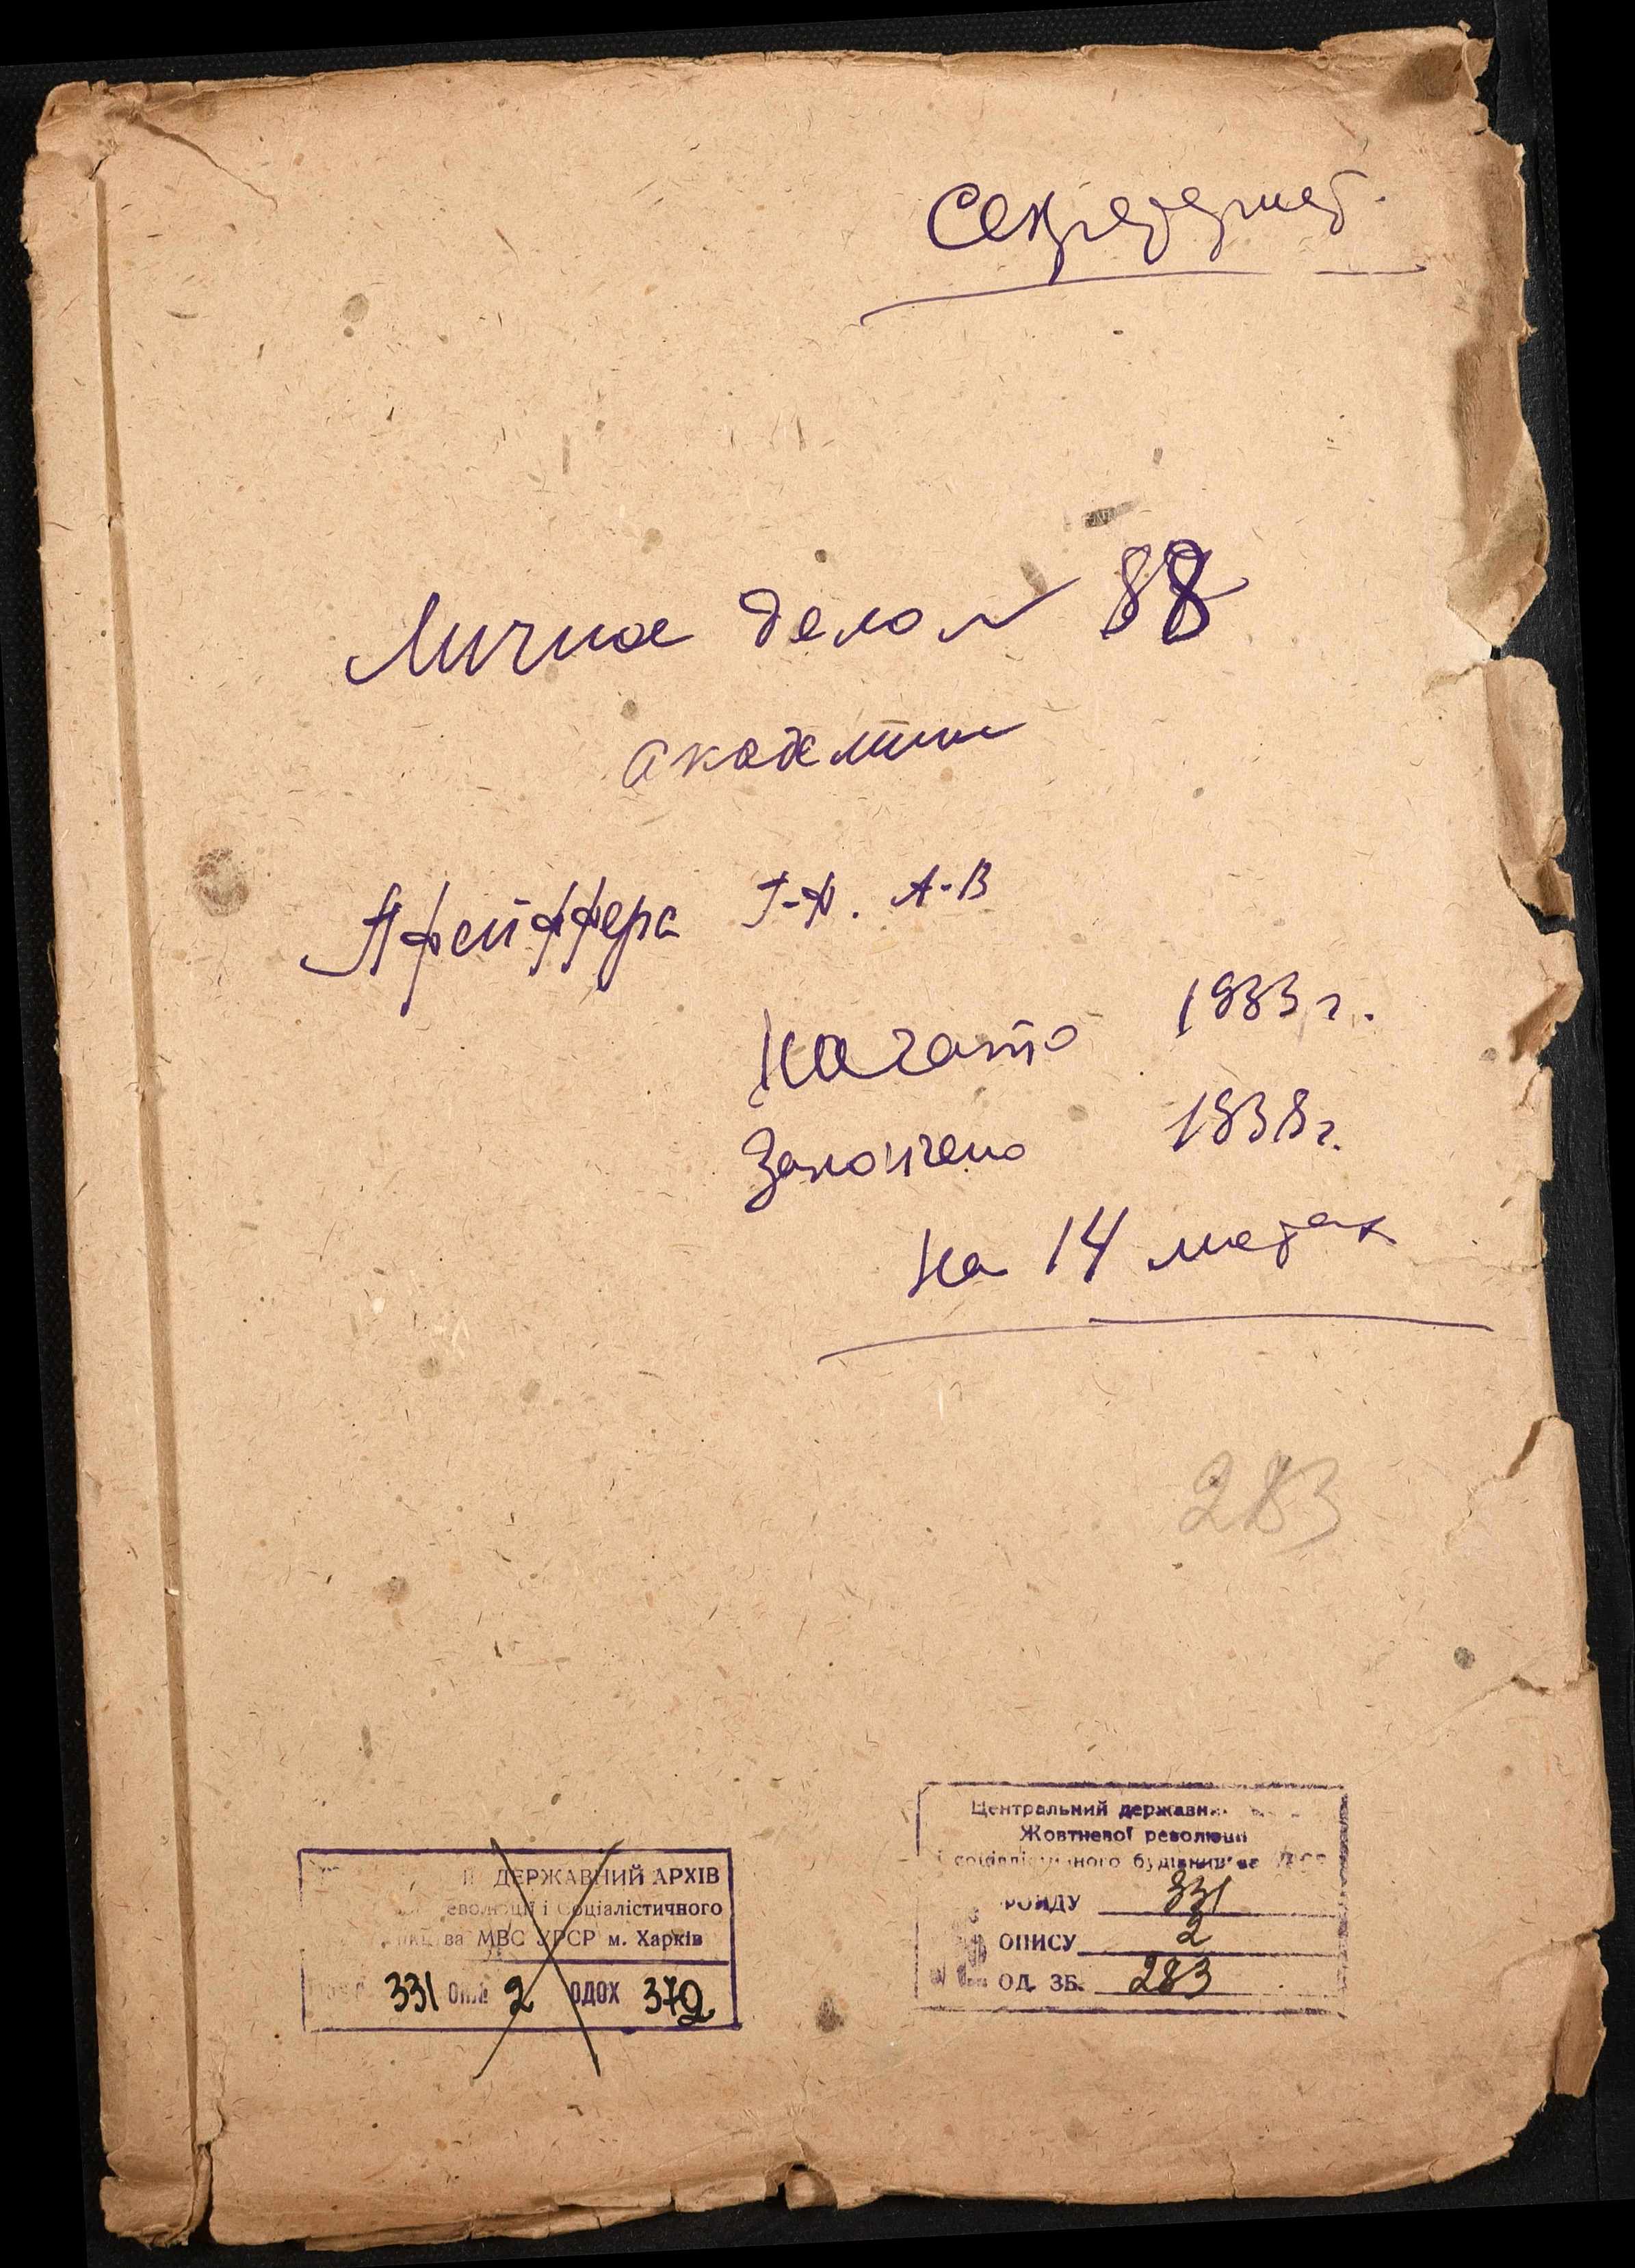 Секретариат.
Личное дело № 88
академик
Пфейффера Г-Ф. А-В
Начато 1933 г.
Закончено 1938 г.
на 14 листах
283
ДЕРЖАВНИЙ АРХІВ
еволюції і Соціалістичного
ва МВС УРСР м. Харків
331 Оп. 2 ОДОХ 372
Центральний державн
Жовтневої революції
соціалістичного будівництва УРСР
ФОНДУ 331
ОПИСУ 2
ОД. ЗБ. 283